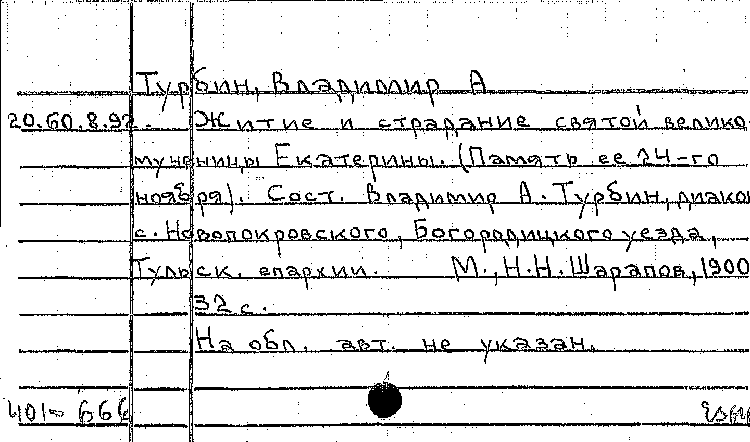 Турбин, Владимир А
20.60.8.92. Житие и страдание святой велико-
мученицы Екатерины. (Память ее 24-го
ноября). Сост. Владимир А. Турбин, диакон
с. Новопокровского, Богородицкого уезда,
Тульск. епархии. М., Н.Н. Шарапов, 1900
32 с.
На обл. авт. не указан.
401-666